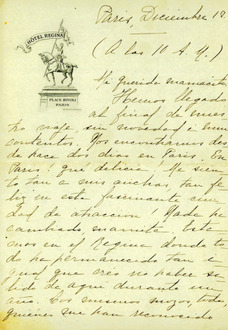 Paris, Diciembre 12
(A las 10 A.M.)
HÔTEL REGINA
PLACE RIVOLI
PARIS
Mi querida mamacita
Hemos llegado
al final de nues
tro viaje, sin novedad e
contentos. Nos encontramos des
de hace dos dias en Paris. En
Paris! que delicia. Me sien
to tan a mis anchas, tan fe
liz en esta fascinante ciu
dad de atraccion! Nada ha
cambiado mamita. Esta
mos en el Regina donde to
do ha permanecido tan i
gual que creo no haber sa
lido de aqui durante un
año. Los mismos mozos, todos
quienes me han reconocido